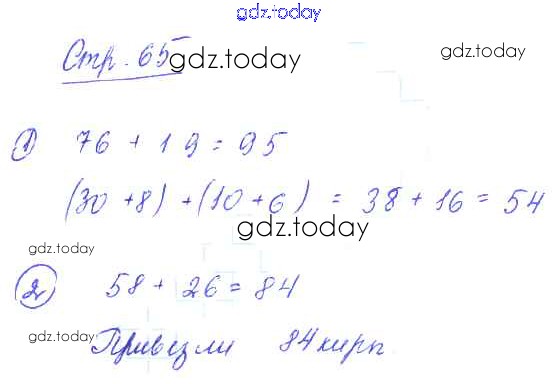 gdz.today
Стр. 65
gdz.today
gdz.today
1) 76 + 19 = 95
(30 + 8) + (10 + 6) = 38 + 16 = 54
gdz.today
gdz.today
2 58 + 26 = 84
gdz.today
gdz.today
Привезли 84 кирп.